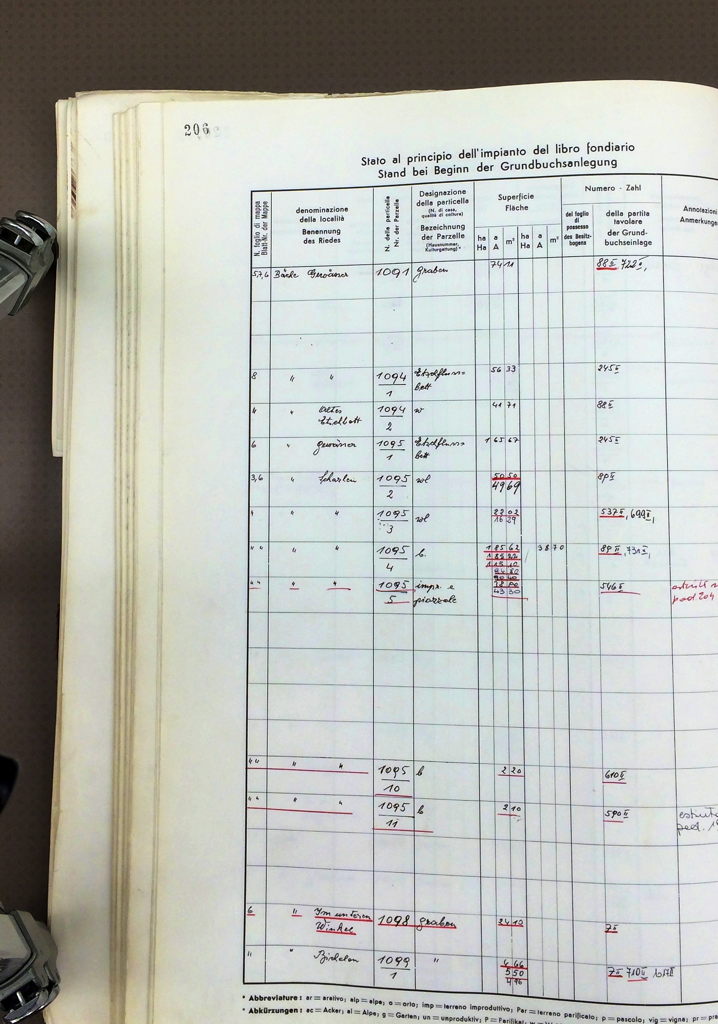 206
Stato al principio dell'impianto del libro fondiario
Stand bei Beginn der Grundbuchsanlegung
N. foglio di mappa
Blatt-Nr. der Mappe
denominazione
della località
Benennung
des Riedes
N. della particella
Nr. der Parzelle
Designazione
della particella
(N. di casa,
qualità di coltura)
Bezeichnung
der Parzelle
(Hausnummer,
Kulturgattung)*
Superficie
Fläche
ha a m² ha a m²
Ha A Ha A
Numero - Zahl
del foglio
di
possesso
des Besitz-
bogens
della partita
tavolare
der Grund-
buchseinlage
Annotazioni
Anmerkungen
5,7,6 Bäche Gewässer 1091 graben 74 11 88 II 722 II,
8 " " 1094/1 Etschfluss- 56 33 245 II
bett
" " altes 1094/2 41 71 88 II
Etschbett
6 " Gewässer 1095/1 Etschfluss- 1 65 67 245 II
bett
3,6 " 1095/2 50 50
49 69
" " " 1095/3 22 02 537 II, 699 II,
16 29
" " " " 1095/4 b. 1 85 62 38 70 89 II, 731 II,
" " " " 1095/5 impr. e 546 II
piazzale 43 30
" " " " 1095/10 b 2 20 610 II
" " " " 1095/11 b 2 10 590 II
6 " Im unteren 1098 graben 24 10 7 II
Winkel
" " 1099/1 " 4 66 7 II 710 II 1017 II
5 50
4 96
* Abbreviature: ar = arativo; alp = alpe; o = orto; imp = terreno improduttivo; Par = terreno parificato; p = pascolo; vig = vigna; pr = pra
* Abkürzungen: ac = Acker; al = Alpe; g = Garten; un = unproduktiv; P = Parifikat